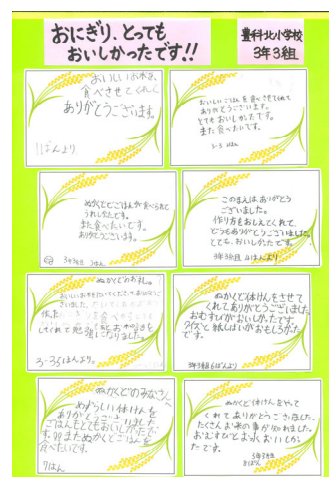 おにぎり、とっても
おいしかったです!!
豊科北小学校
3年3組
おいしいお米を、
食べさせてくれて
ありがとうございます。
1ぱんより
おいしいごはんを食べさせてくれて
ありがとうございます。
とてもおいしかったです。
また食べたいです。
3-3
ぬかくどでごはんが食べられて
うれしかったです。
また食べたいです。
ありがとうございます。
3年3組
このまえはありがとう
ございました。
作り方をおしえてくれて
どうもありがとうございました。
とても、おいしかったです。
3年3組 4はんより
ぬかくどのお礼。
してくれて勉強になりました。
3-35はんより。
ぬかくど体けんをさせて
くれてありがとうございました。
おむすびがおいしかったです。
クイズと紙しばいがおもしろかった
です。
3年3組6ぱんより
ぬかくどのみなさんへ
めずらしい体けんを
ありがとうございました
ごはんもとてもおいしかったで
す。またぬかくどごはんを
食べたいです。
7はん
ぬかくど体けんをやって
くれてありがとうございました。
たくさんお米の事が分かりました。
おむすびとお水おいしか
ったです。
3年3組
8ぱんより